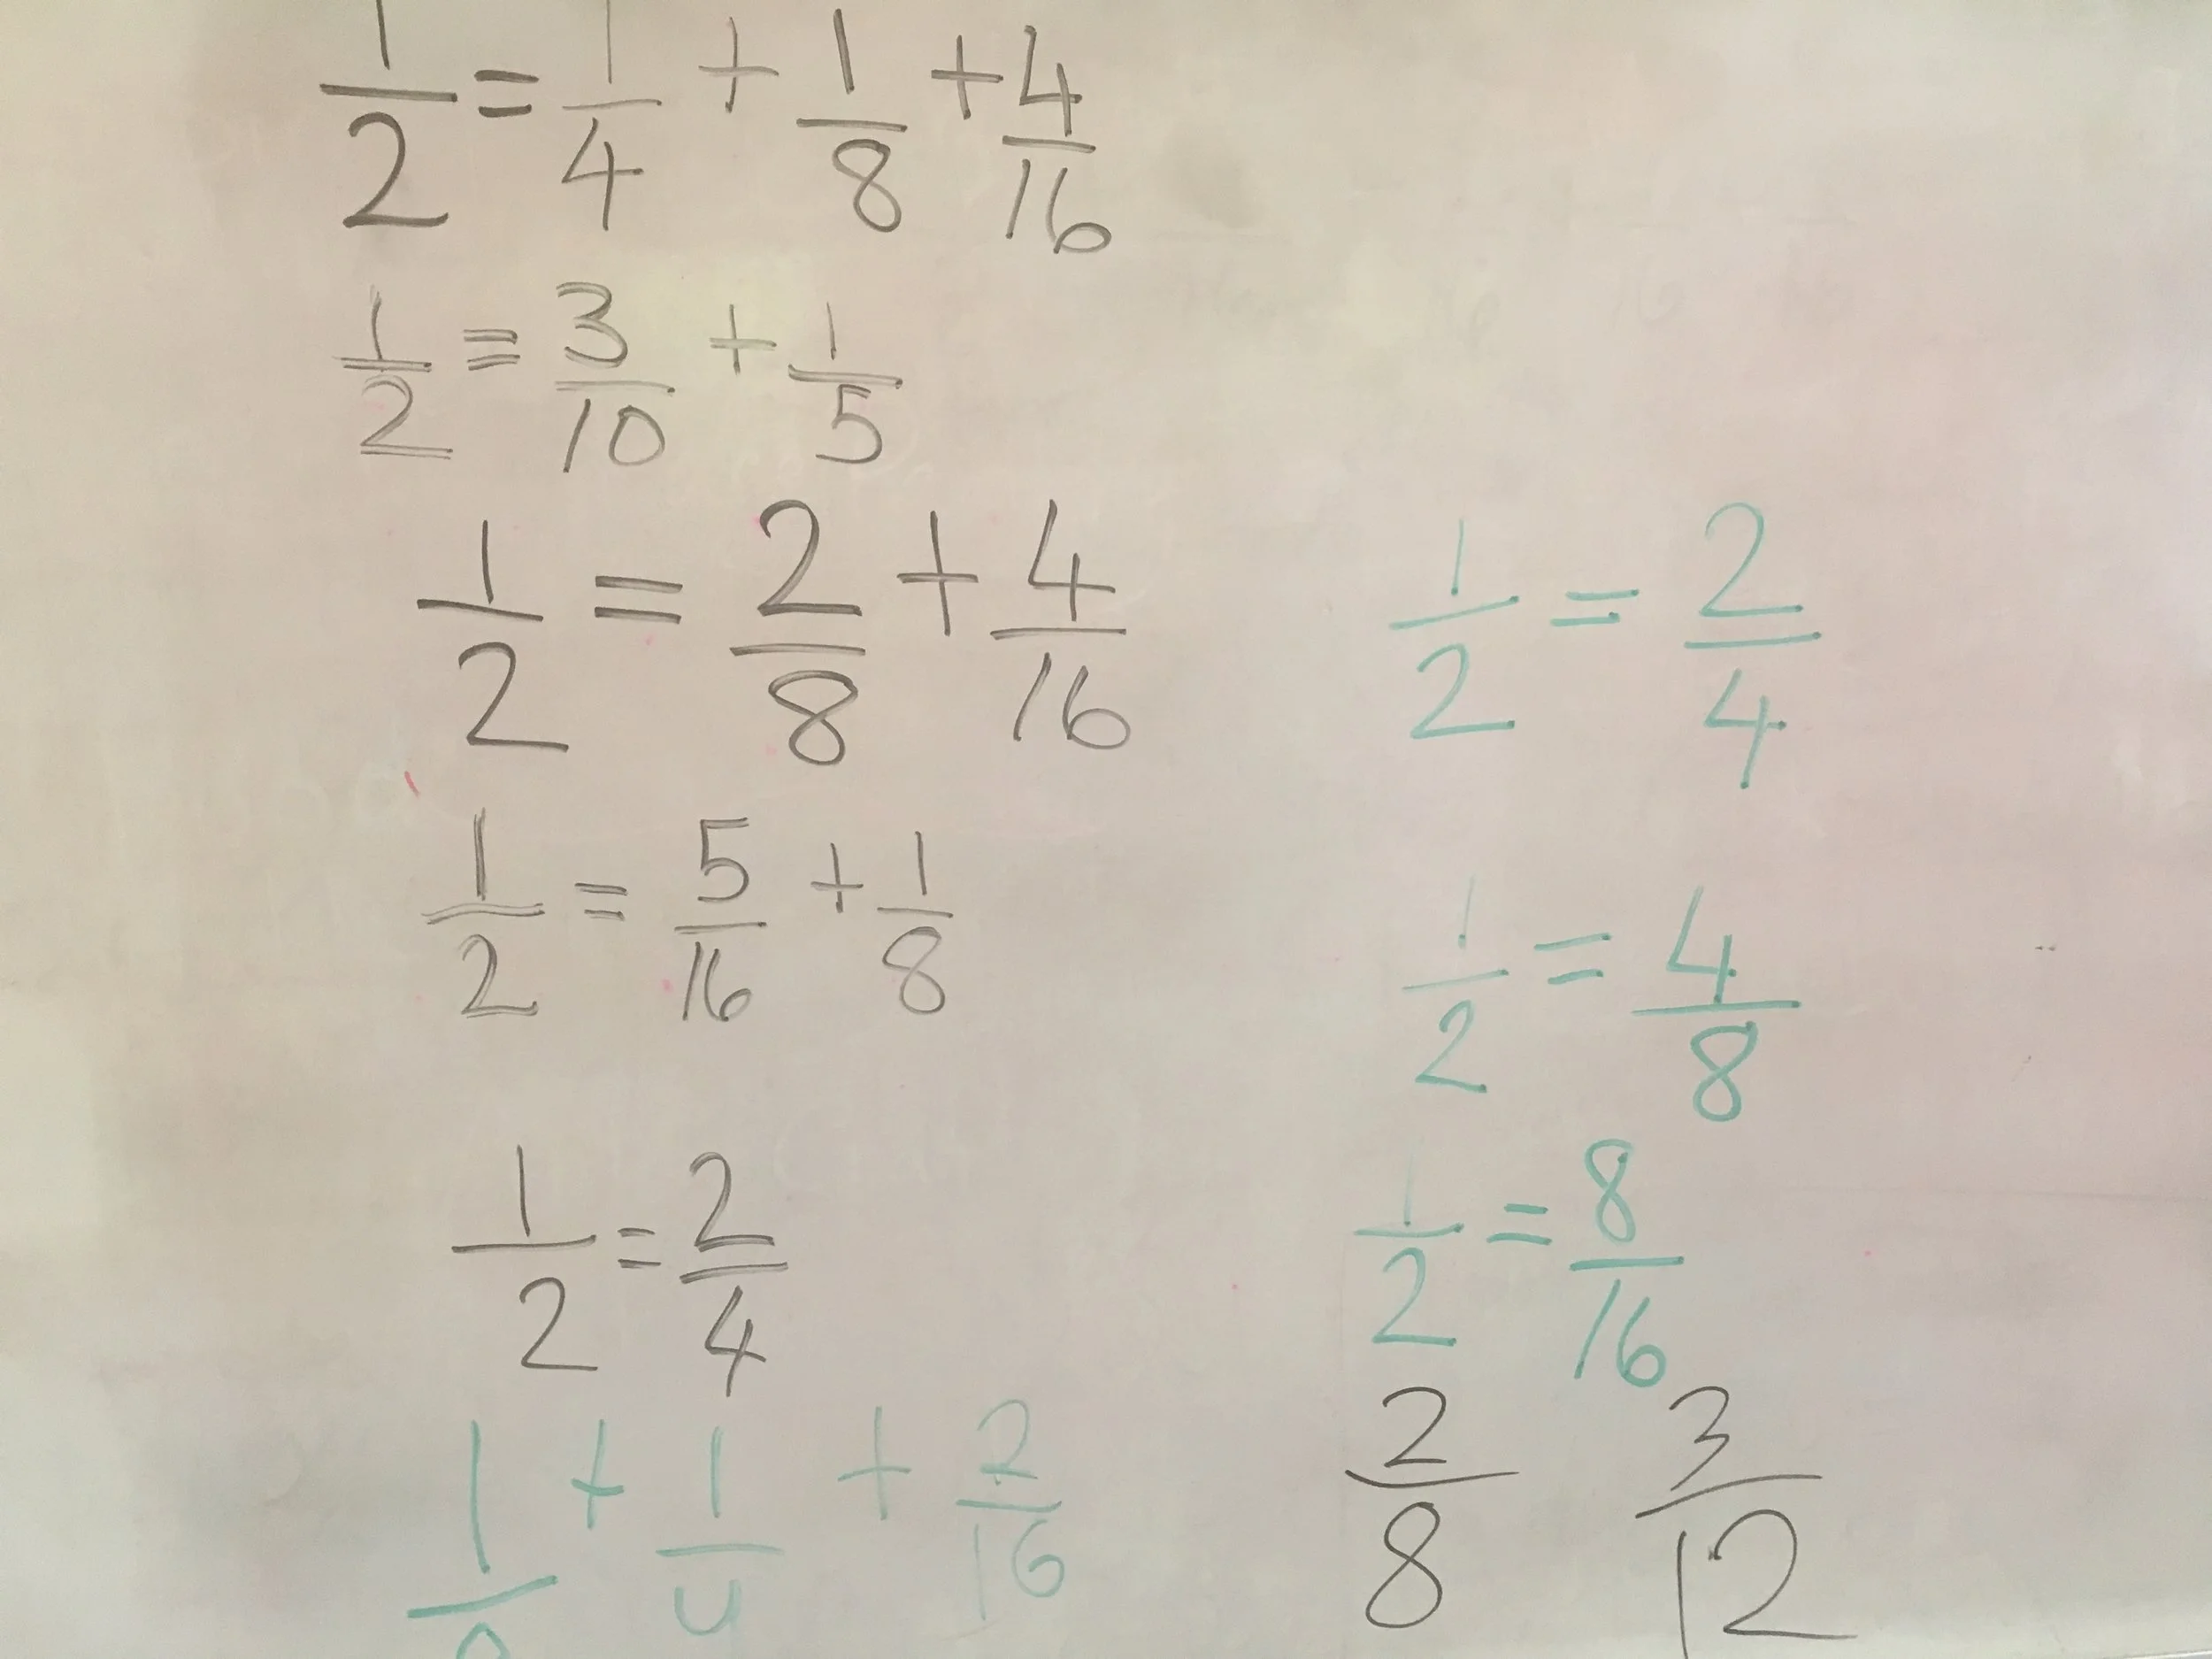 1/2 = 1/4 + 1/8 + 4/16
1/2 = 3/10 + 1/5
1/2 = 2/8 + 4/16
1/2 = 5/16 + 1/8
1/2 = 2/4
1/ + 1/4 + 2/16
1/2 = 2/4
1/2 = 4/8
1/2 = 8/16
2/8 3/12